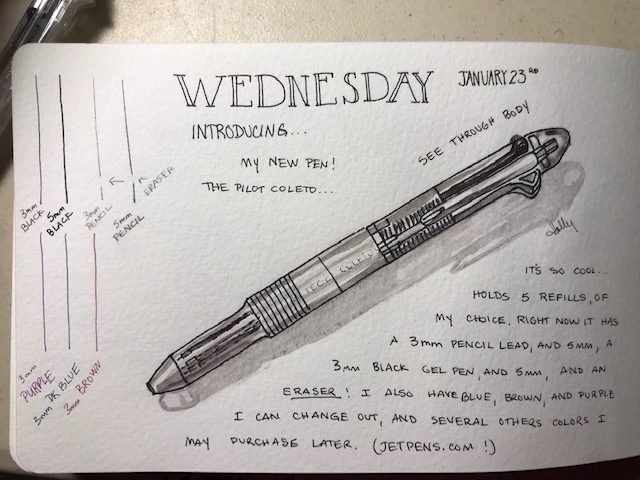 WEDNESDAY JANUARY 23RD
INTRODUCING...
MY NEW PEN!
THE PILOT COLETO...
SEE THROUGH BODY
3mm BLACK
5mm BLACK
3mm PENCIL
5mm PENCIL
ERASER
TEC-C COLETO
Holly
IT'S SO COOL...
HOLDS 5 REFILLS, OF
MY CHOICE. RIGHT NOW IT HAS
A 3mm PENCIL LEAD, AND 5mm, A
3mm BLACK GEL PEN, AND 5mm, AND AN
ERASER! I ALSO HAVE BLUE, BROWN, AND PURPLE
I CAN CHANGE OUT, AND SEVERAL OTHERS COLORS I
MAY PURCHASE LATER. (JETPENS.COM!)
3mm PURPLE
3mm DK BLUE
3mm BROWN